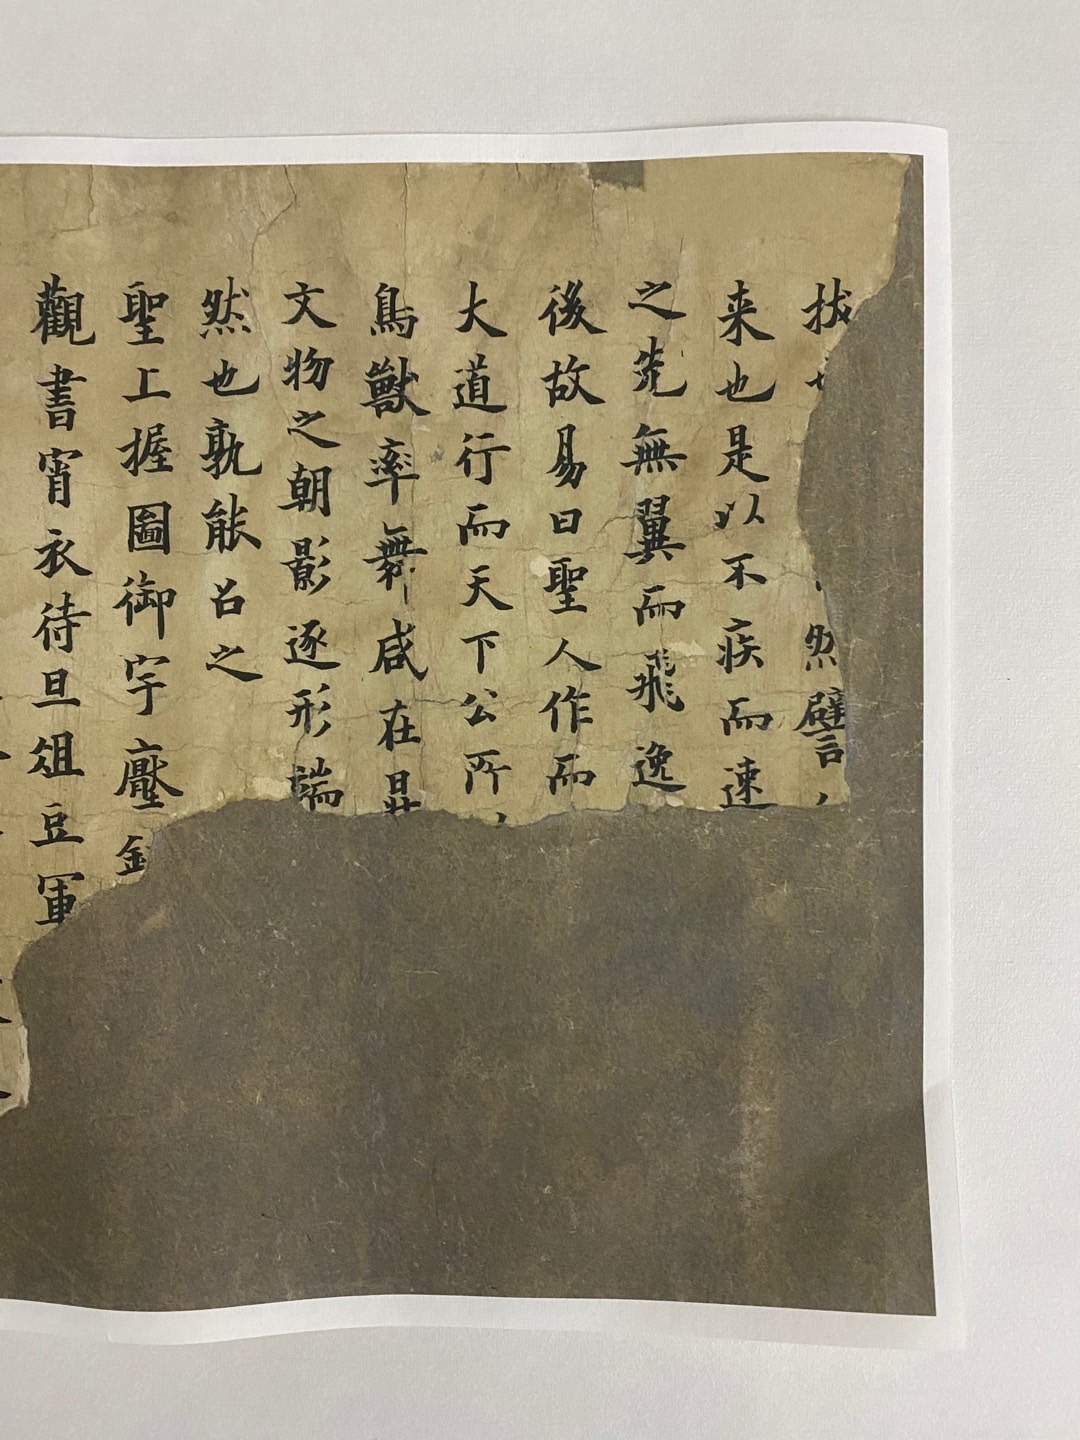 拔然譬
来也是以不疾而速
之先無翼而飛逸
後故易曰聖人作而
大道行而天下公所
鳥獸率舞咸在
文物之朝影逐形端
然也孰能召之
聖上握圖御宇壓
觀書宵衣待旦俎豆軍